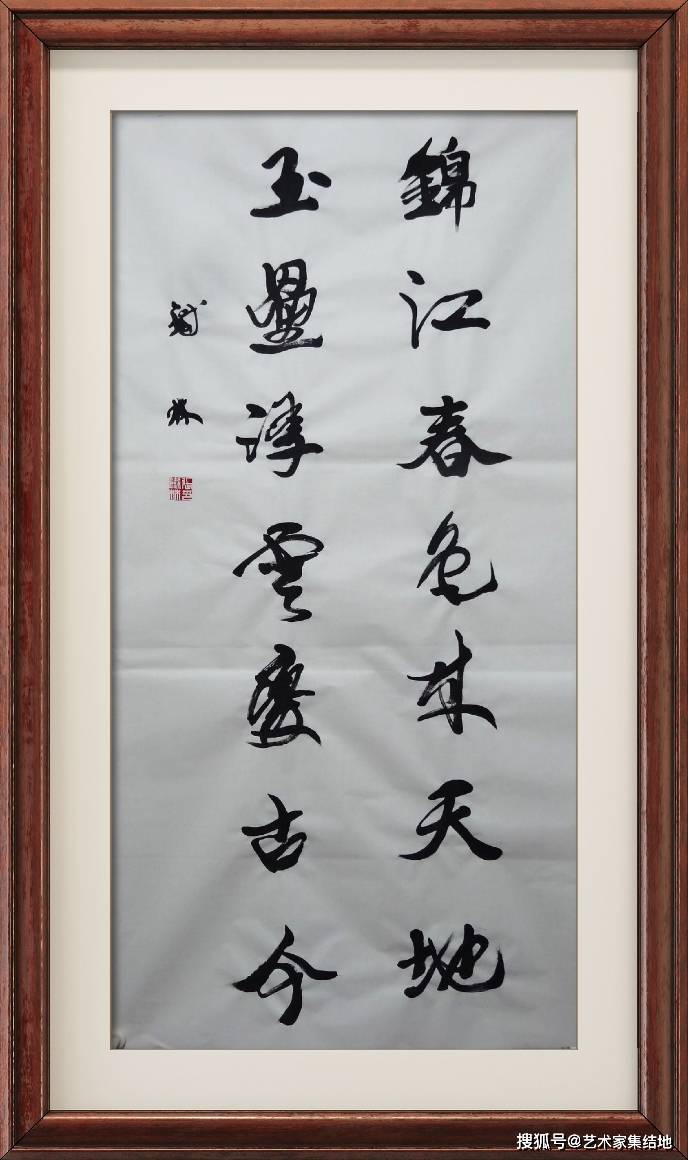 錦江春色來天地
玉壘浮雲變古今
林
搜狐号@艺术家集结地